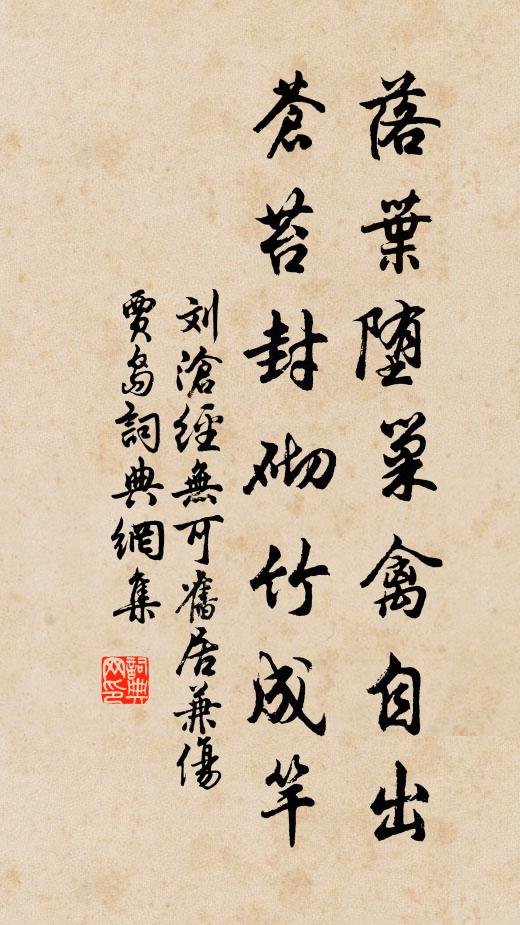 落葉堕巢禽自出
蒼苔封砌竹成竿
刘滄經無可舊居兼傷
賈島詞典網集
詞典网印